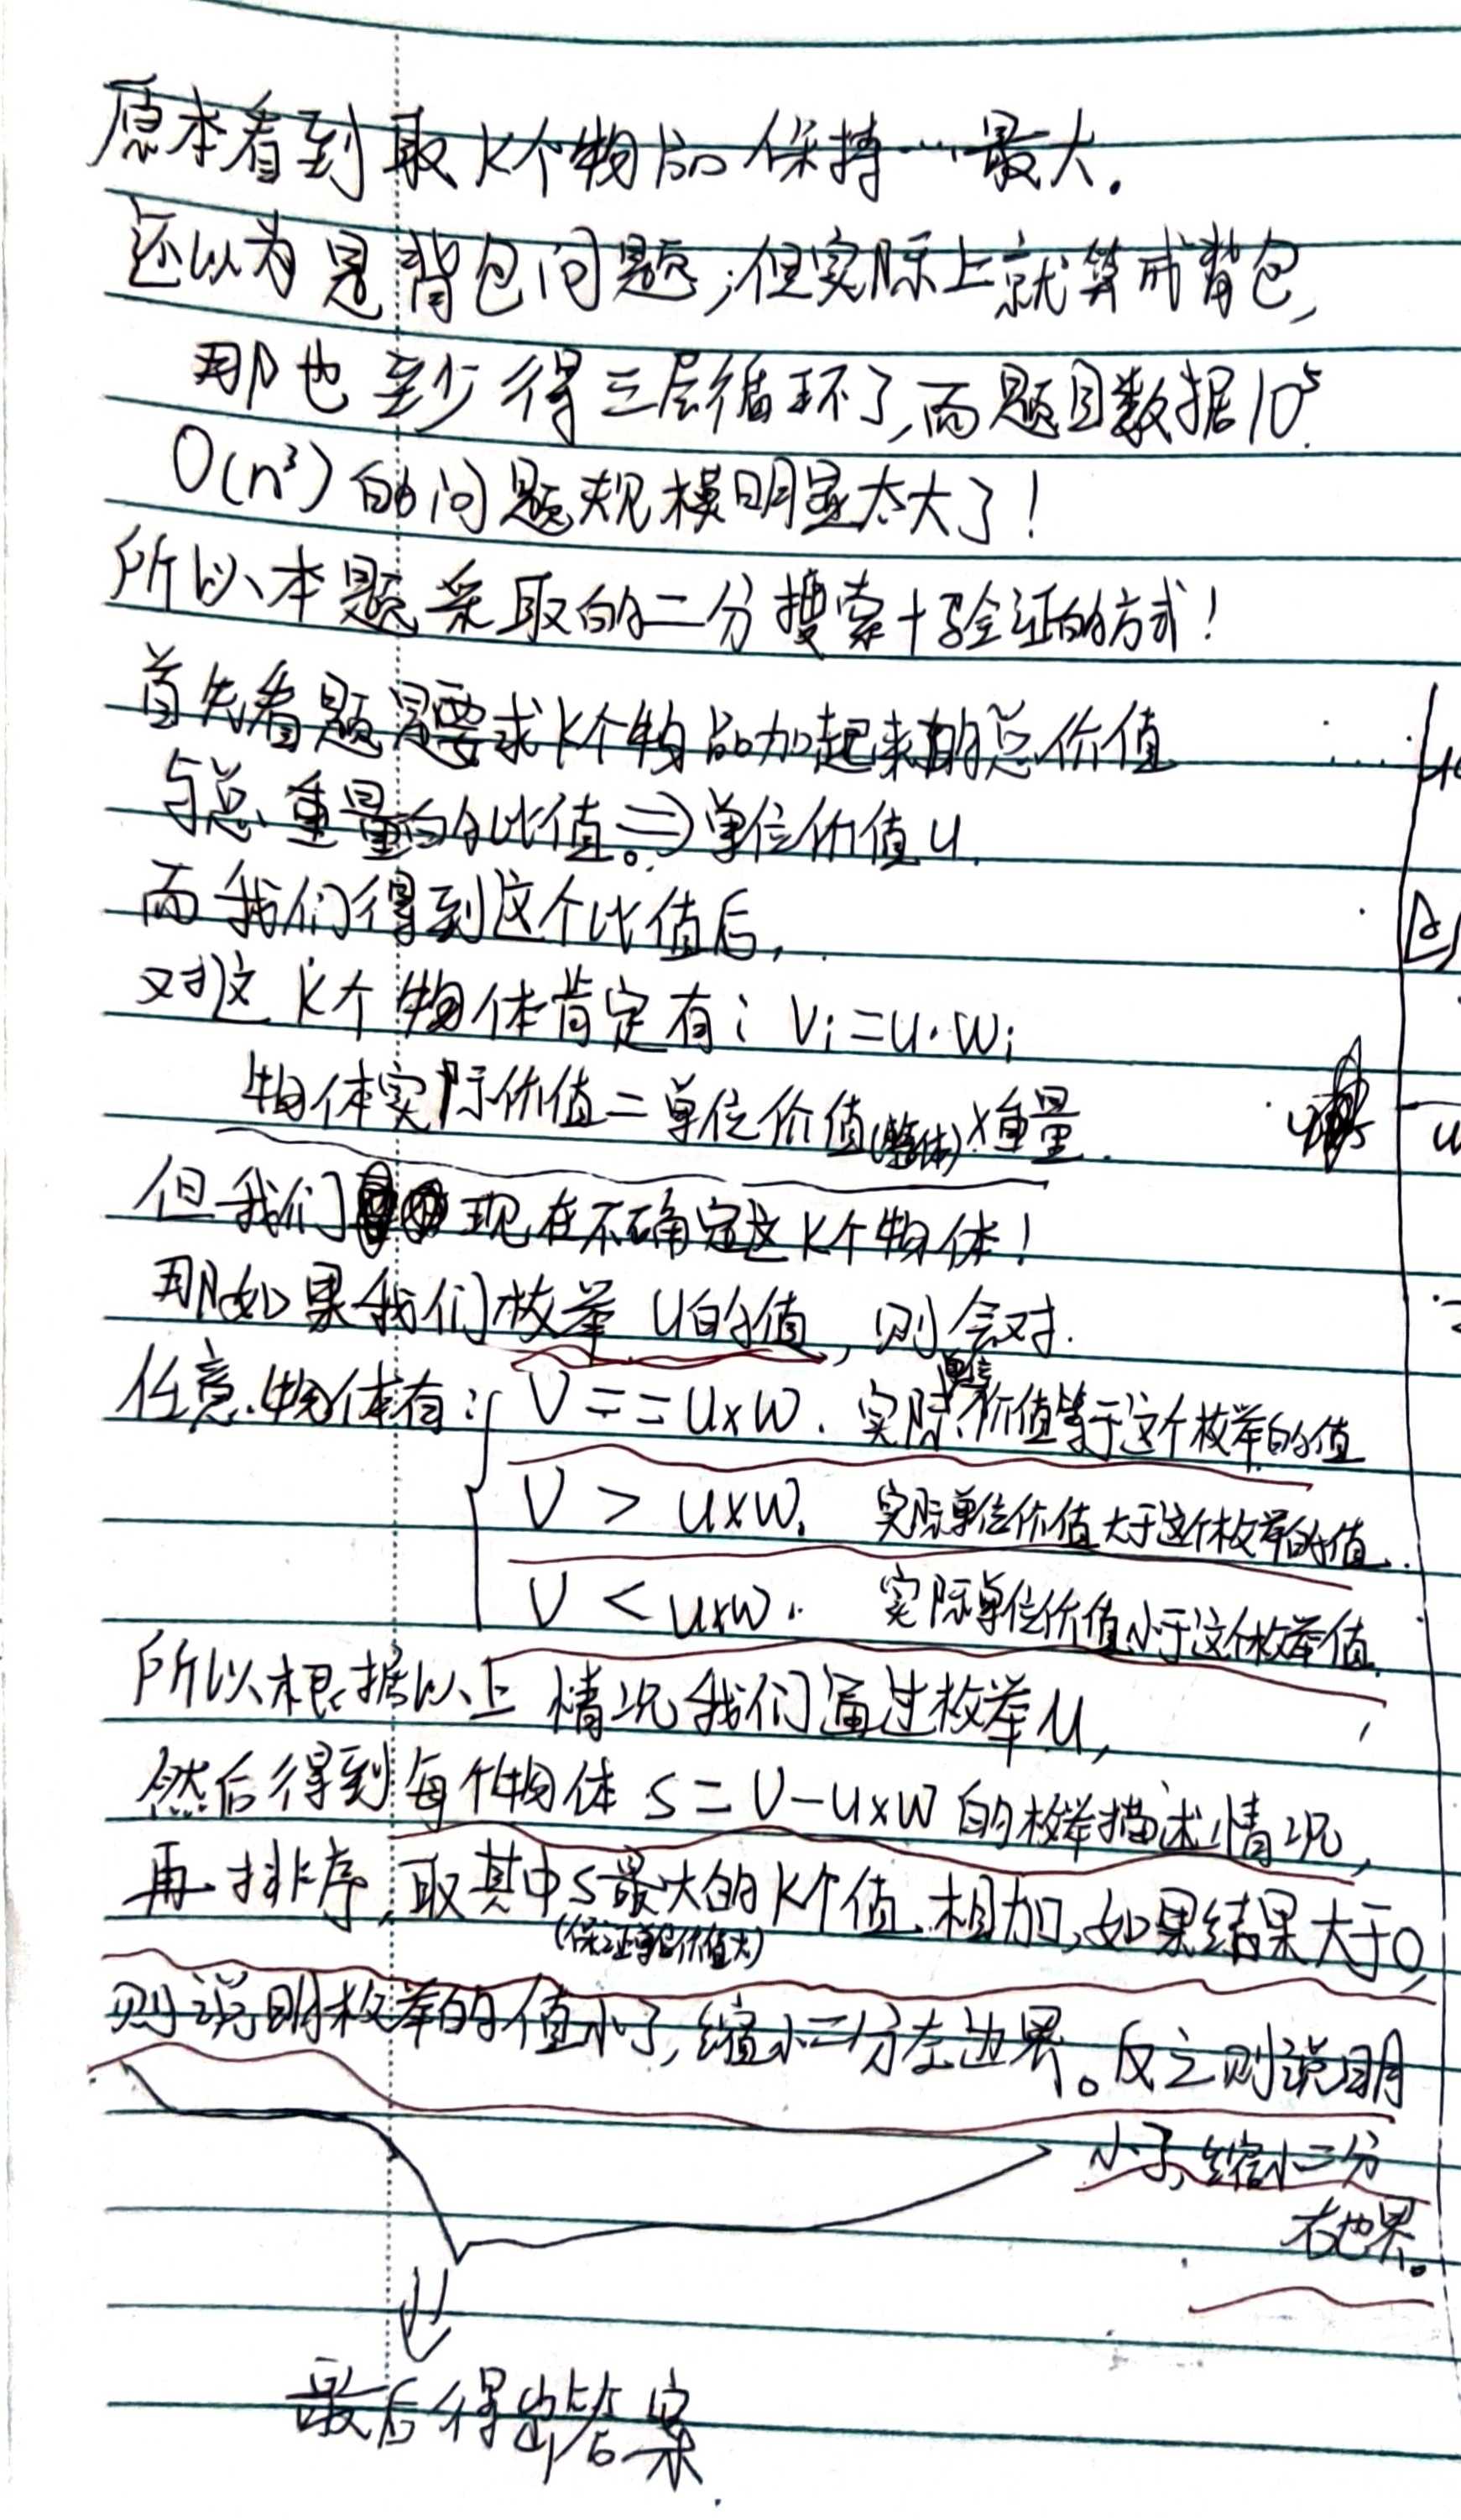 原本看到取K个物品保持…最大.
还以为是背包问题,但实际上就算成背包,
那也至少得三层循环了,而题目数据10⁵.
O(n³)的问题规模明显太大了!
所以本题采取的二分搜索+验证的方式!
首先看题是要求K个物品加起来的总价值
与总重量的比值。⇒单位价值u.
而我们得到这个比值后,
对这K个物体肯定有: Vi=u·Wi
物体实际价值=单位价值(整体)×重量.
但我们现在不确定这K个物体!
那如果我们枚举U的值,则会对.
任意物体有: V==U×W. 实际单位价值等于这个枚举的值
V > U×W. 实际单位价值大于这个枚举的值.
V < U×W. 实际单位价值小于这个枚举值.
所以根据以上情况我们通过枚举U,
然后得到每个物体 S=V-U×W 的枚举描述情况,
再排序,取其中S最大的K个值相加,如果结果大于0,
(保证单位价值大)
则说明枚举的值小了,缩小二分左边界。反之则说明
小了,缩小二分
右边界。
最后得出答案.